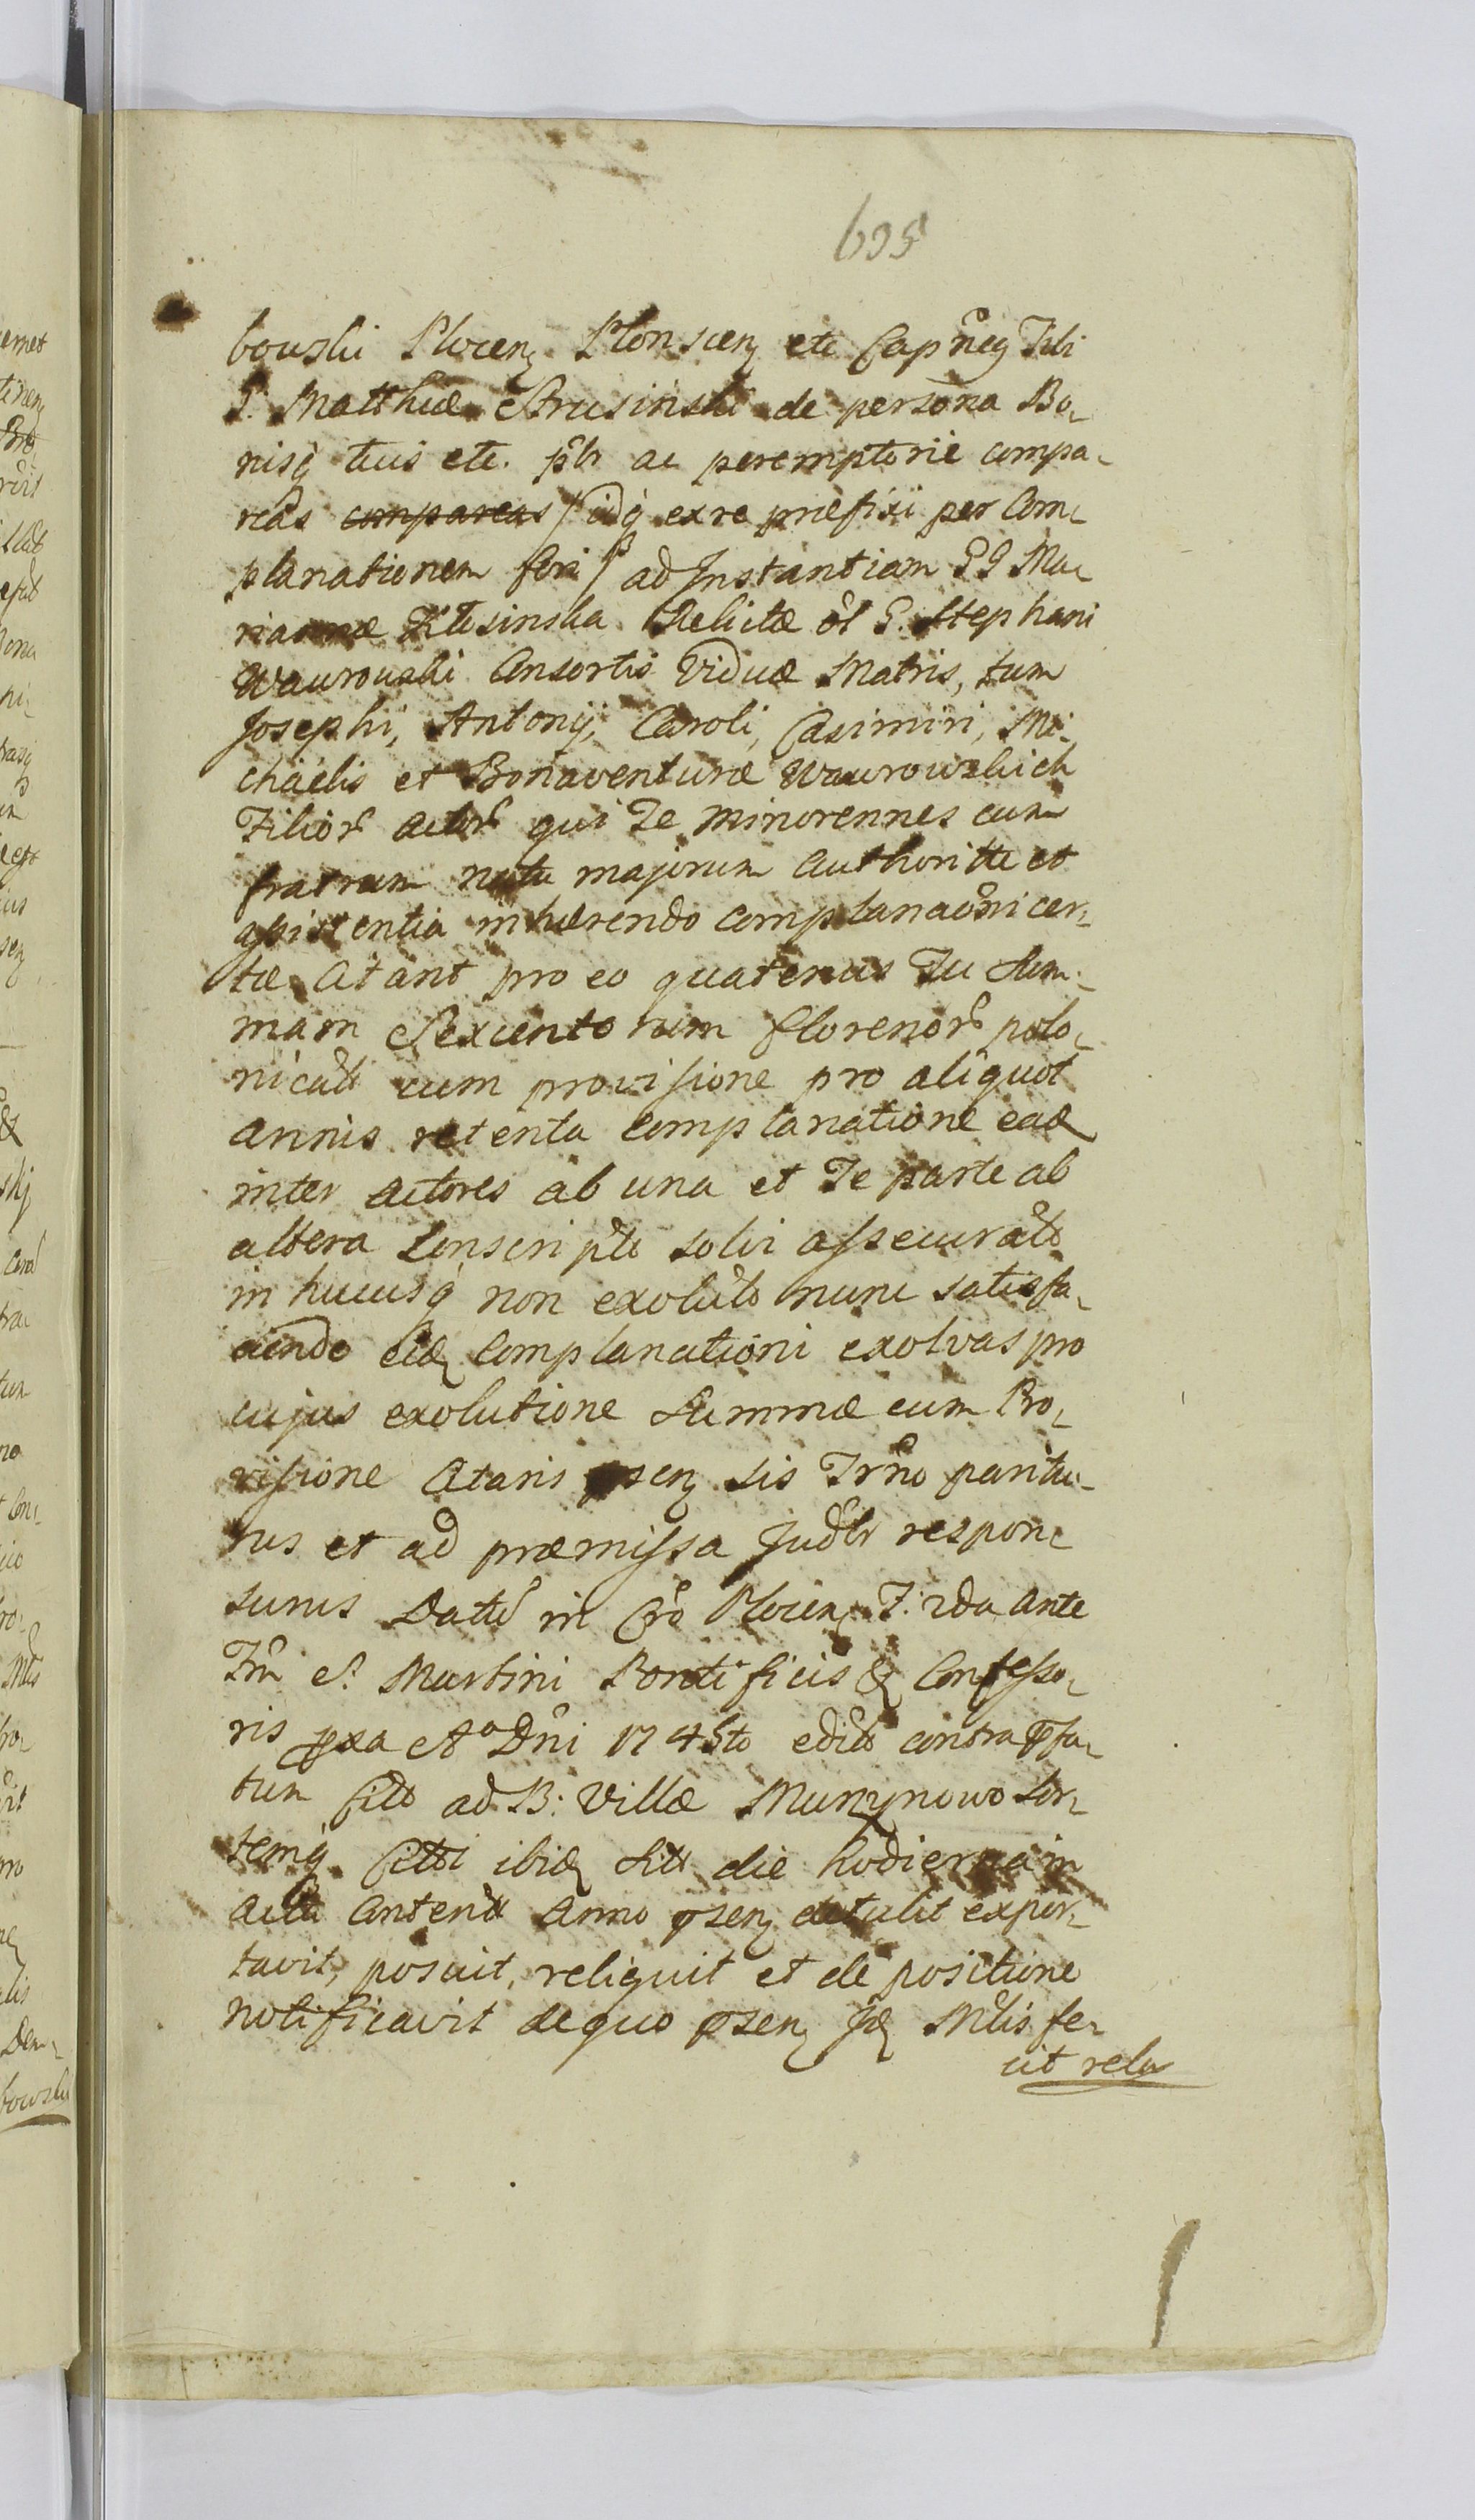 695
bowski Plocen Plonscen etc Capneg Tibi
G. Matthiæ Strusinski de persona Bo-
nisq tuis etc. plr ac peremptorie compa-
reas compareas / idq ex re præfixi per Com-
planationem fori / ad Instantiam GG Ma-
riannæ Klusinska Relictæ ol G. Stephani
Wawrowski Consortis Viduæ Matris, tum
Josephi, Antonij, Caroli, Casimiri, Mi-
chaelis et Bonaventuræ Wawrowskich
Filior actor qui Te minorennes cum
fratrum natu majorum authoritte et
assistentia inhærendo complanaoni cer-
tæ Citant pro eo quatenus Tu Sum-
mam Sexcentorum florenor polo-
nicall cum provisione pro aliquot
annis retenta complanatione ead
inter actores ab una et Te parte ab
altera Conscripto solvi assecurato
in hucusq non exoluto nunc satisfa-
ciendo eid Complanationi exolvas pro
cujus exolutione Summæ cum Pro-
visione Citaris psen sis Trno paritu-
rus et ad præmissa Judlr respon-
surus Datt in Cro Plocen F. 2da ante
Fm S. Martini Pontificis & Confesso-
ris pxa Ao Dni 1745to edicto contra pfa-
tum Citt ad B: Villæ Munynowo Sor-
temq Citti ibid Sitt die hodierna in
actu Contentt Anno psen detulit expor-
tavit, posuit, reliquit et de positione
notificavit de quo psen Id Mlis fe-
cit rela